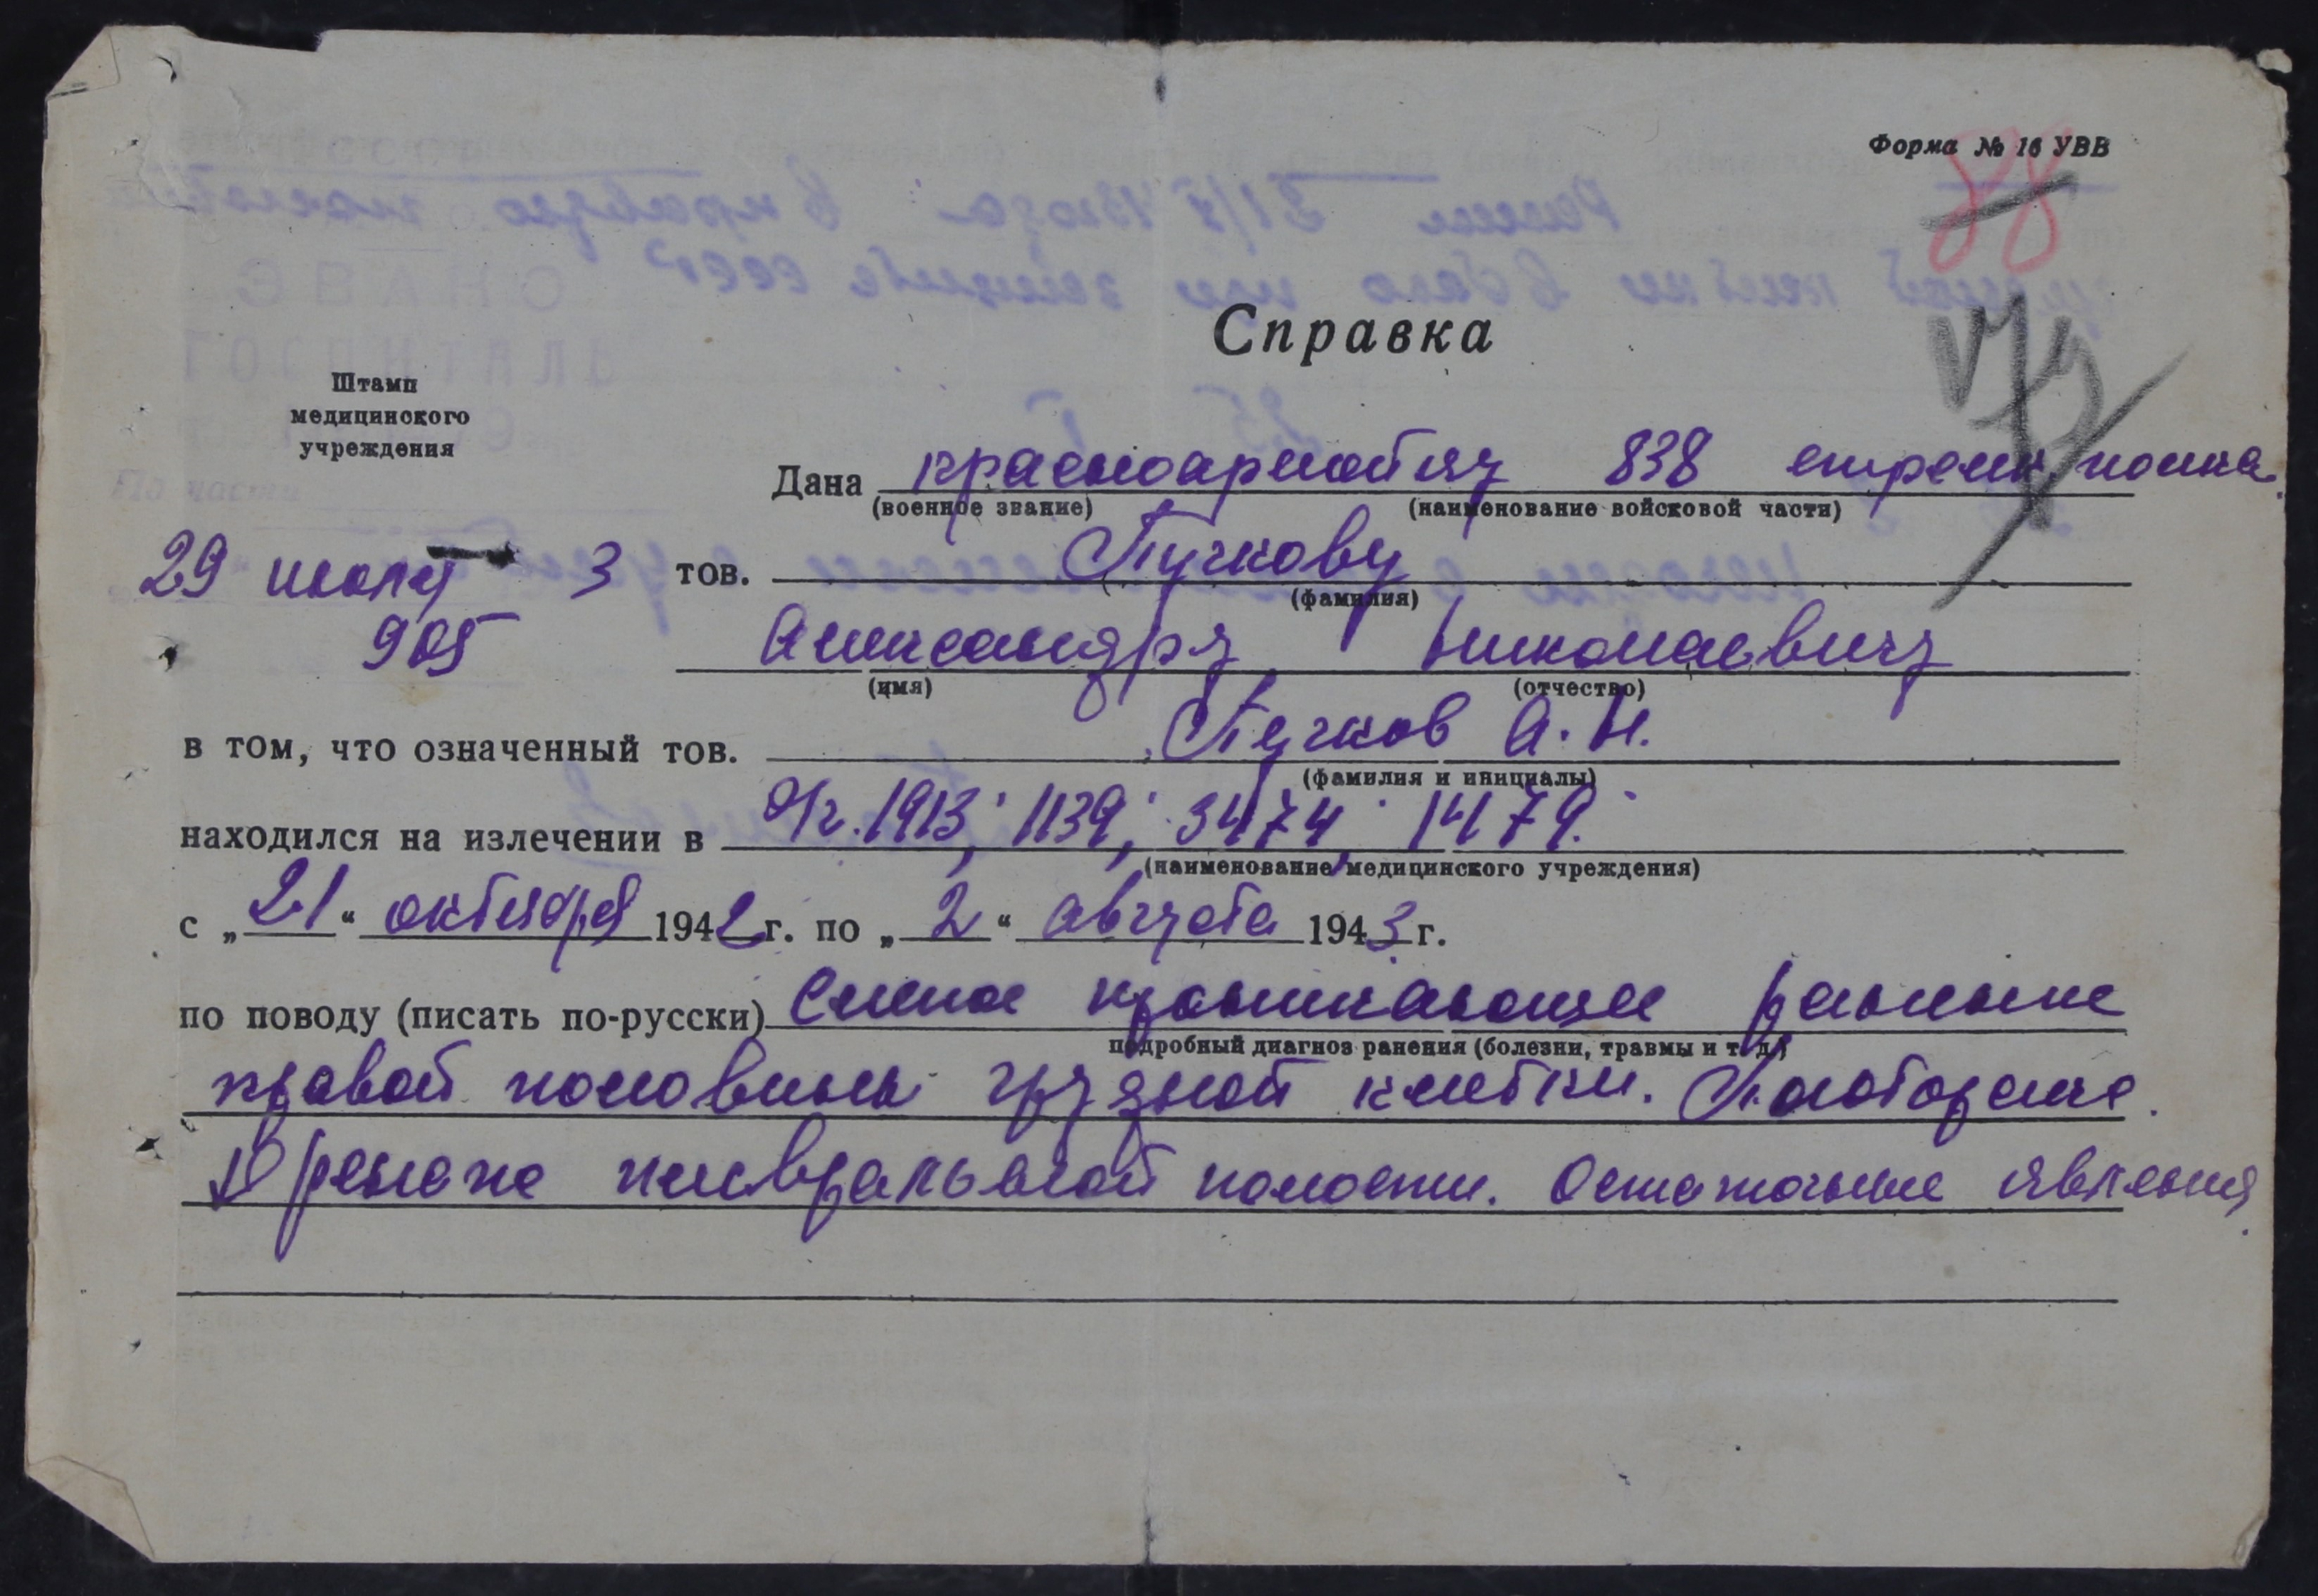 Форма № 16 УВВ
88
Справка
Штамп
медицинского
учреждения
Дана красноармейцу 838 стрелк. полка
(военное звание) (наименование войсковой части)
29 июля 3
905
тов. Пучкову
(фамилия)
Александру Николаевичу
(имя) (отчество)
в том, что означенный тов. Пучков А. Н.
(фамилия и инициалы)
находился на излечении в э/г. 1913; 1139; 3474; 1479.
(наименование медицинского учреждения)
с „21“ октября 1942 г. по „2“ августа 1943 г.
по поводу (писать по-русски) Слепое проникающее ранение
подробный диагноз ранения (болезни, травмы и т. д.)
правой половины грудной клетки.
плевральной полости. Остаточные явления